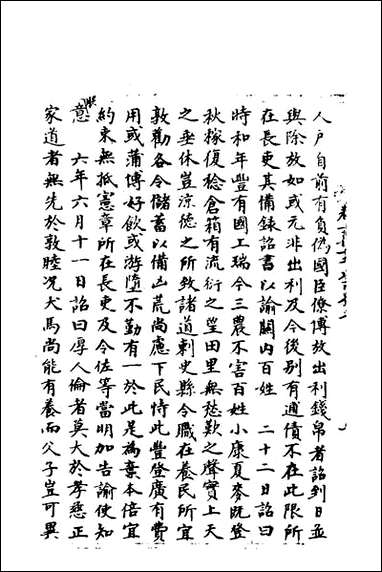 人户自前有負僞國臣僚博放出利錢帛者詔到日並
與除放如或元非出利及今後别有逋債不在此限所
在長吏其備錄詔書以諭闗内百姓　二十二日詔曰
時和年豐有國上瑞今三農不害百姓小康夏麥既登
秋稼復稔倉箱有流衍之望田里無愁歎之聲實上天
之垂休豈涼德之所致諸道刺史縣令職在養民所宜
敦勸各令儲蓄以備凶荒尚慮下民恃此豐登廣有費
用或蒲博好飲或游墮不勤有一於此是為棄本倍宜
約束無抵憲章所在長吏及令佐等當明加告諭使知
朕意　六年六月十一日詔曰厚人倫者莫大於孝慈正
家道者無先於敦睦况犬馬尚能有養而父子豈可異